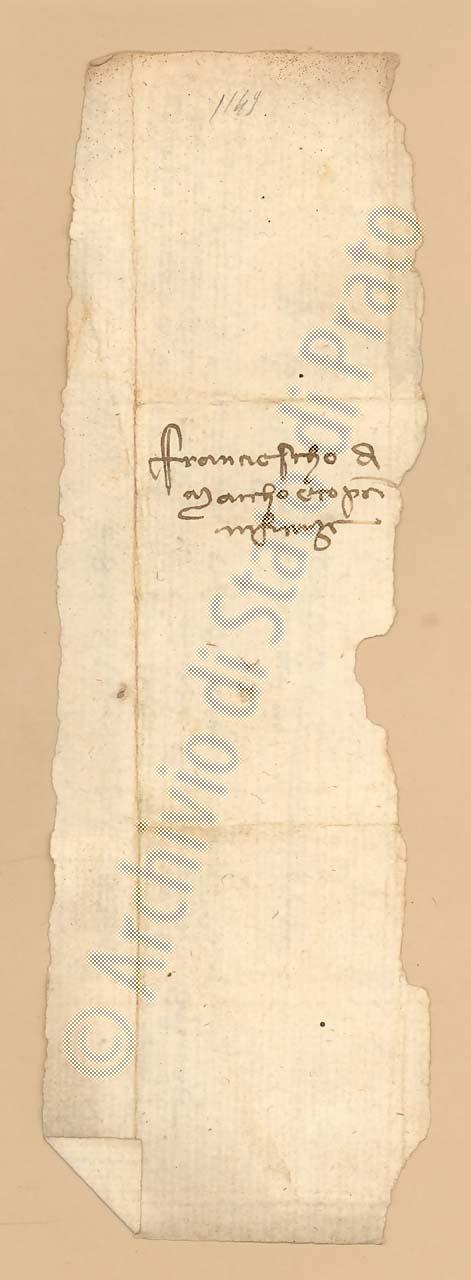 1149
Franciescho d
Marcho e chopᵃ
in firenze
© Archivio di Stato di Prato